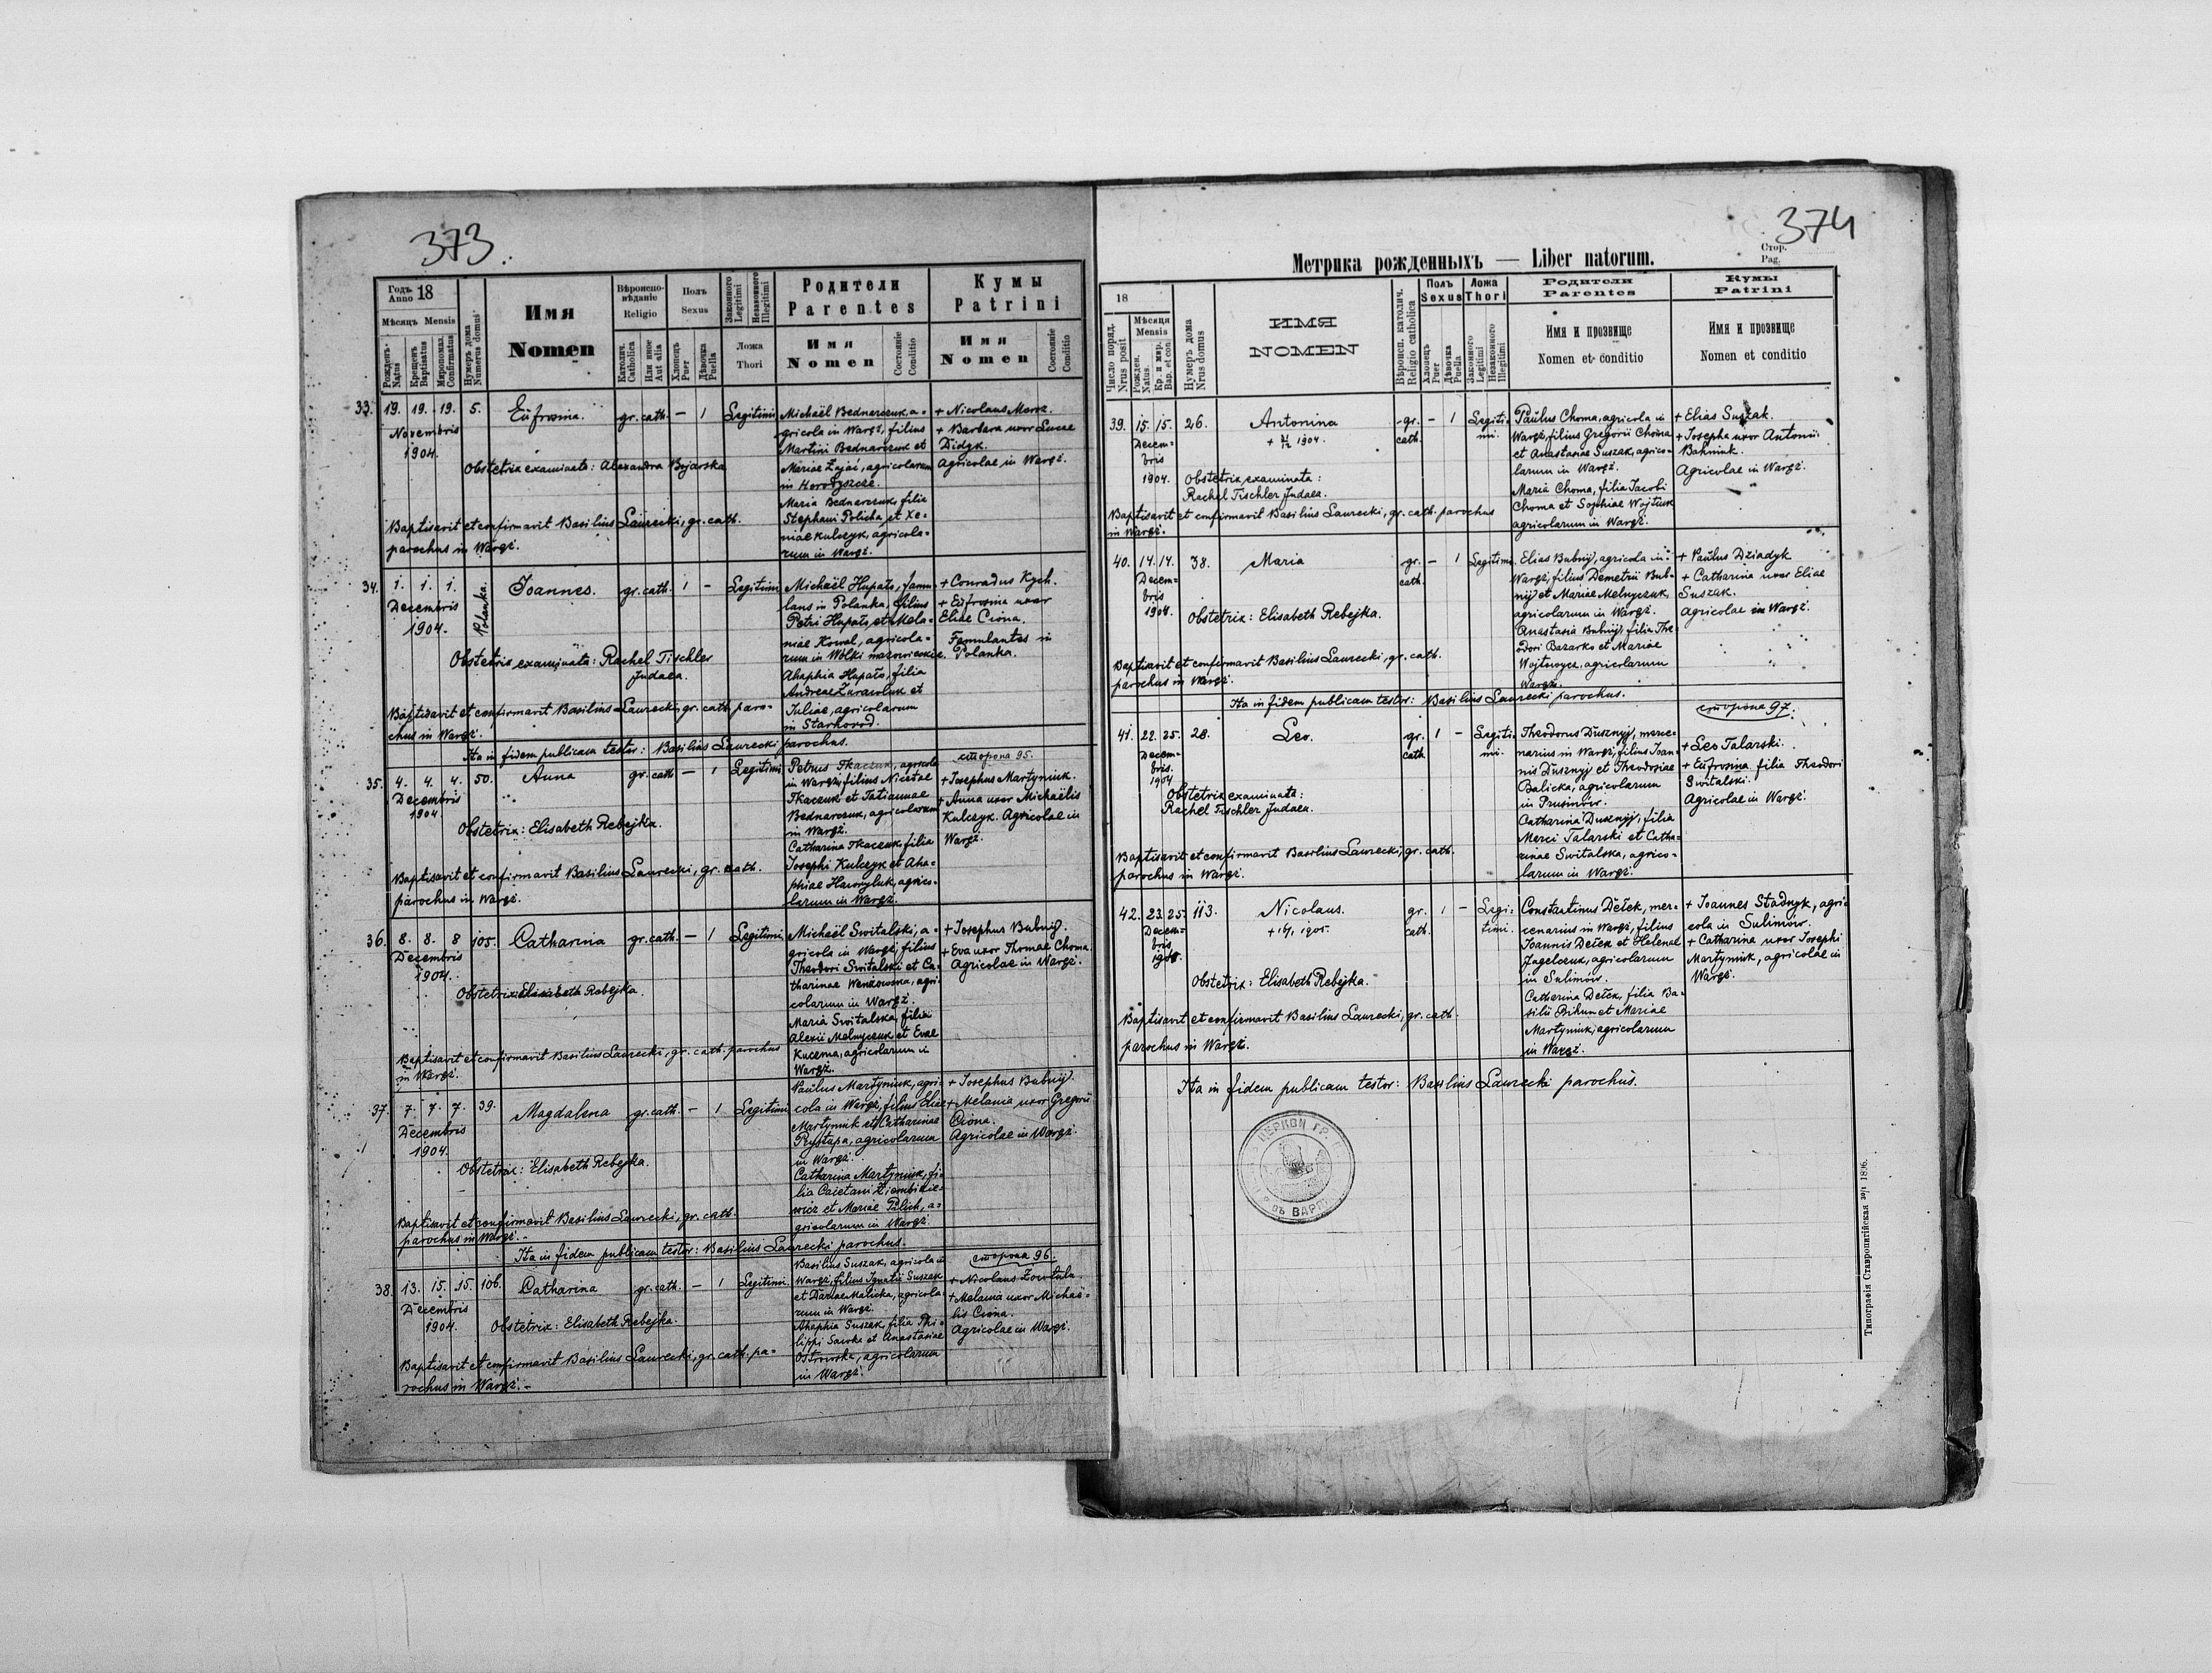 373.
Годъ Anno 18
Мѣсяцъ Mensis
Рожденъ Natus
Крещенъ Baptisatus
Миропомаз. Confirmatus
Нумеръ дома Numerus domus
Имя
Nomen
Вѣроисповѣданіе
Religio
Католич. Catholica
Или иное Aut alia
Полъ
Sexus
Хлопецъ Puer
Дѣвочка Puella
Законного Legitimi
Незаконного Illegitimi
Ложа
Thori
Родители
Parentes
Имя
Nomen
Состояніе Conditio
Кумы
Patrini
Имя
Nomen
Состояніе Conditio
33. 19. 19. 19. 5. Eufrosina. gr. cath. — 1 Legitimi
Novembris
1904.
Obstetrix examinata: Alexandra Bojarska
Baptisavit et confirmavit Basilius Laurecki, gr. cath.
parochus in Waręż.
Michaël Bednarczuk, a-
gricola in Waręż, filius
Martini Bednarczuk et
Mariae Zając, agricolarum
in Horodyszcze.
Maria Bednarczuk, filia
Stephani Policha et Xe-
niae Kulczyk, agricola-
rum in Waręż.
+ Nicolaus Moroz.
+ Barbara uxor Lucae
Didyk.
Agricolae in Waręż.
34. 1. 1. 1. Polanka. Joannes. gr. cath. 1 - Legitimi
Decembris
1904.
Obstetrix examinata: Rachel Tischler
Judaea.
Baptisavit et confirmavit Basilius Laurecki, gr. cath. paro-
chus in Waręż.
Michaël Hupało, famu-
lans in Polanka, filius
Petri Hupało, et Mela-
niae Kowal, agricola-
rum in Wólki mazowieckie.
Ahaphia Hupało, filia
Andreae Żurawluk et
Juliae, agricolarum
in Starhorod.
+ Conradus Kych.
+ Eufrosina uxor
Eliae Ciona.
Famulantes in
Polanka.
Ita in fidem publicam testor: Basilius Laurecki parochus.
сторона 95.
35. 4. 4. 4. 50. Anna gr. cath — 1 Legitimi
Decembris
1904
Obstetrix: Elisabeth Rebejka.
Baptisavit et confirmavit Basilius Laurecki, gr. cath.
parochus in Waręż.
Petrus Tkaczuk, agricola
in Waręż, filius Nicetae
Tkaczuk et Tatiannae
Bednarczuk, agricolarum
in Waręż.
Catharina Tkaczuk filia
Josephi Kulczyk et Aha-
phiae Hawryluk, agrico-
larum in Waręż.
+ Josephus Martyniuk.
+ Anna uxor Michaëlis
Kulczyk. Agricolae in
Waręż.
36. 8. 8. 8 105. Catharina gr. cath. — 1 Legitimi
Decembris
1904.
Obstetrix: Elisabeth Rebejka.
Baptisavit et confirmavit Basilius Laurecki, gr. cath. parochus
in Waręż.
Michaël Switalski, a-
gricola in Waręż, filius
Theodori Switalski et Ca-
tharinae Wenzowska, agri-
colarum in Waręż.
Maria Switalska, filia
Alexii Melnyczuk et Evae
Kucerna, agricolarum in
Waręż.
+ Josephus Bubnij.
+ Eva uxor Thomae Choma.
Agricolae in Waręż.
37. 7. 7. 7. 39. Magdalena gr. cath. — 1 Legitimi
Decembris
1904.
Obstetrix: Elisabeth Rebejka.
Baptisavit et confirmavit Basilius Laurecki, gr. cath.
parochus in Waręż. -
Paulus Martyniuk, agri-
cola in Waręż, filius Eliae
Martyniuk et Catharinae
Prystapa, agricolarum
in Waręż.
Catharina Martyniuk, fi-
lia Caietani Ziembikie-
wicz et Mariae Pilich, a-
gricolarum in Waręż
+ Josephus Bubnij.
+ Melania uxor Gregorii
Ciona.
Agricolae in Waręż.
Ita in fidem publicam testor: Basilius Laurecki parochus.
сторона 96.
38. 13. 15. 15. 106. Catharina gr. cath. — 1 Legitimi.
Decembris
1904.
Obstetrix: Elisabeth Rebejka.
Baptisavit et confirmavit Basilius Laurecki, gr. cath. pa-
rochus in Waręż. -
Basilius Suszak, agricola in
Waręż, filius Ignatii Suszak
et Dariae Malicka, agricola-
rum in Waręż.
Ahaphia Suszak, filia Phi-
lippi Sawka et Anastasiae
Ostrowska, agricolarum
in Waręż.
+ Nicolaus Zowtula.
+ Melania uxor Michaë-
lis Ciona.
Agricolae in Waręż.
374
Метрика рожденныхъ — Liber natorum.
Стор.
Pag.
18
Число поряд. Nrus posit
Мѣсяця
Mensis
Рожден. Natus.
Кр. и мир. Bap. et con.
Нумеръ дома Nrus domus
ИМЯ
NOMEN
Вѣроисп. католич. Religio catholica
Полъ
Sexus
Хлопець Puer
Дѣвочка Puella
Ложа
Thori
Законного Legitimi
Незаконного Illegitimi
Родители
Parentes
Имя и прозвище
Nomen et conditio
Кумы
Patrini
Имя и прозвище
Nomen et conditio
39. 15. 15. 26. Antonina gr. — 1 Legiti-
cath. mi.
Decem-
bris
1904.
1904.
Obstetrix examinata:
Rachel Tischler Judaea.
Baptisavit et confirmavit Basilius Laurecki, gr. cath. parochus
in Waręż.
Paulus Choma, agricola in
Waręż, filius Gregorii Choma
et Anastasiae Suszak, agrico-
larum in Waręż.
Maria Choma, filia Jacobi
Choma et Sophiae Wojtiuk
agricolarum in Waręż.
+ Elias Suszak.
+ Josepha uxor Antonii
Bahniuk.
Agricolae in Waręż.
40. 14. 14. 38. Maria gr. — 1 Legitimi
cath.
Decem-
bris
1904.
Obstetrix: Elisabeth Rebejka.
Baptisavit et confirmavit Basilius Laurecki, gr. cath.
parochus in Waręż.
Elias Bubnij, agricola in
Waręż, filius Demetrii Bub-
nij et Mariae Melnyczuk,
agricolarum in Waręż.
Anastasia Bubnij, filia The-
odori Bazarko et Mariae
Wojtowycz, agricolarum
Waręż.
+ Paulus Dziadyk
+ Catharina uxor Eliae
Suszak.
Agricolae in Waręż.
Ita in fidem publicam testor: Basilius Laurecki parochus.
сторона 97.
41. 22. 25. 28. Leo. gr. 1 — Legiti-
cath mi.
Decem-
bris.
1904
Obstetrix examinata:
Rachel Tischler Judaea.
Baptisavit et confirmavit Basilius Laurecki, gr. cath.
parochus in Waręż.
Theodorus Dusznyj, merce-
narius in Waręż, filius Joan-
nis Dusznyj et Theodosiae
Balicka, agricolarum
in Prusinów.
Catharina Dusznyj, filia
Merci Talarski et Catha-
rinae Switalska, agrico-
larum in Waręż.
+ Leo Talarski.
+ Eufrosina filia Theodori
Switalski.
Agricolae in Waręż.
42. 23. 25. 113. Nicolaus. gr. 1 — Legi-
cath. timi.
Decem-
bris
1904.
1905.
Obstetrix: Elisabeth Rebejka.
Baptisavit et confirmavit Basilius Laurecki, gr. cath.
parochus in Waręż.
Constantinus Dełek, mer-
cenarius in Waręż, filius
Joannis Dełek et Helenae
Jagelczuk, agricolarum
in Sulimów.
Catharina Dełek, filia Ba-
silii Bihun et Mariae
Martyniuk, agricolarum
in Waręż.
+ Joannes Stadnyk, agri-
cola in Sulimów.
+ Catharina uxor Josephi
Martyniuk, agricolae in
Waręż.
Ita in fidem publicam testor: Basilius Laurecki parochus.
ЦЕРКВИ ГР.
въ ВАР
Типографія Ставропигійская 1896.